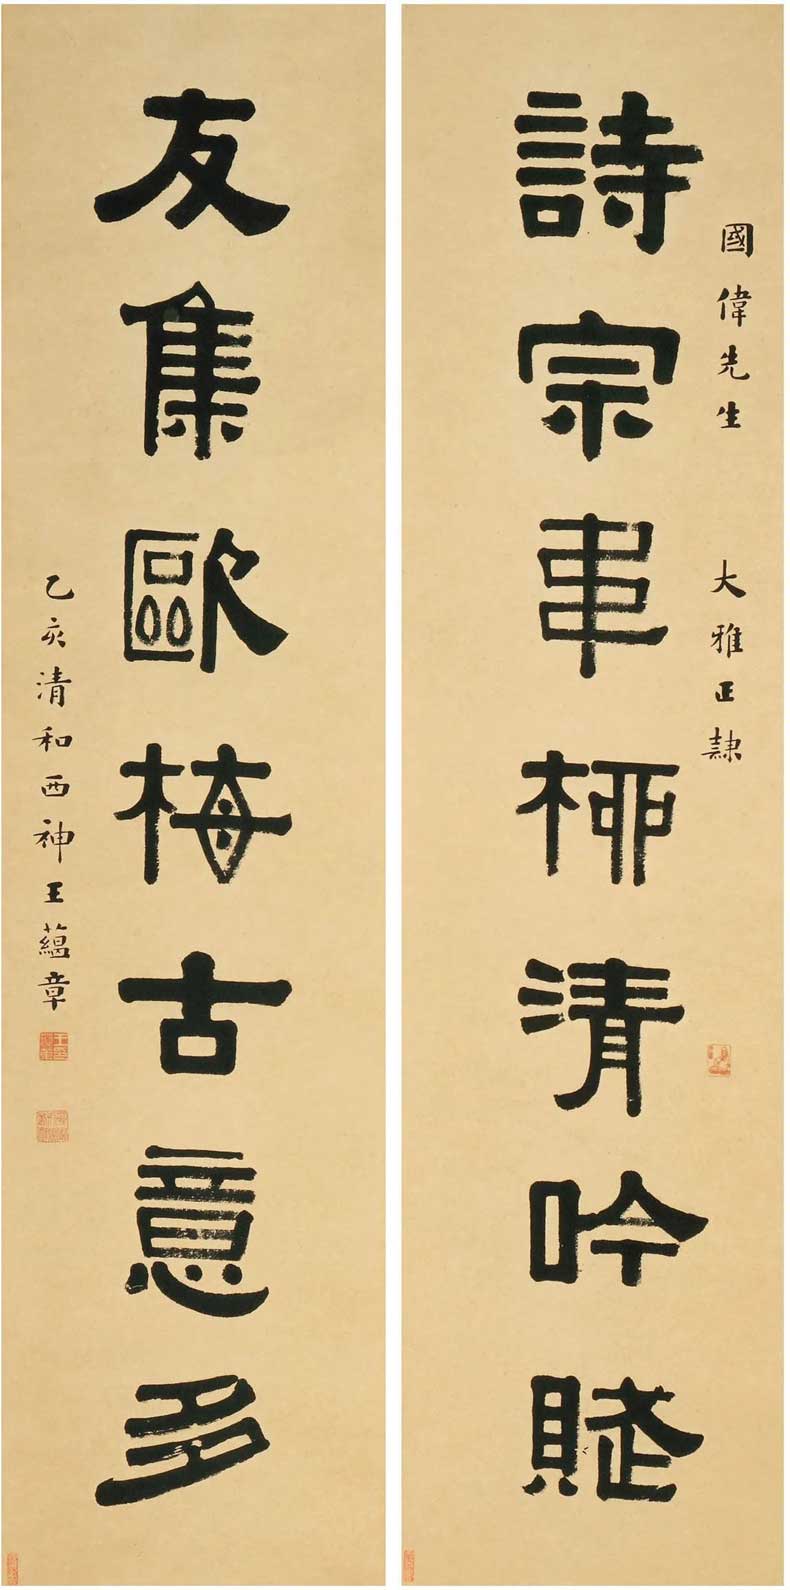 國偉先生 大雅正隸
詩宗韋桺清吟賦
友集歐梅古意多
乙亥清和西神王蘊章